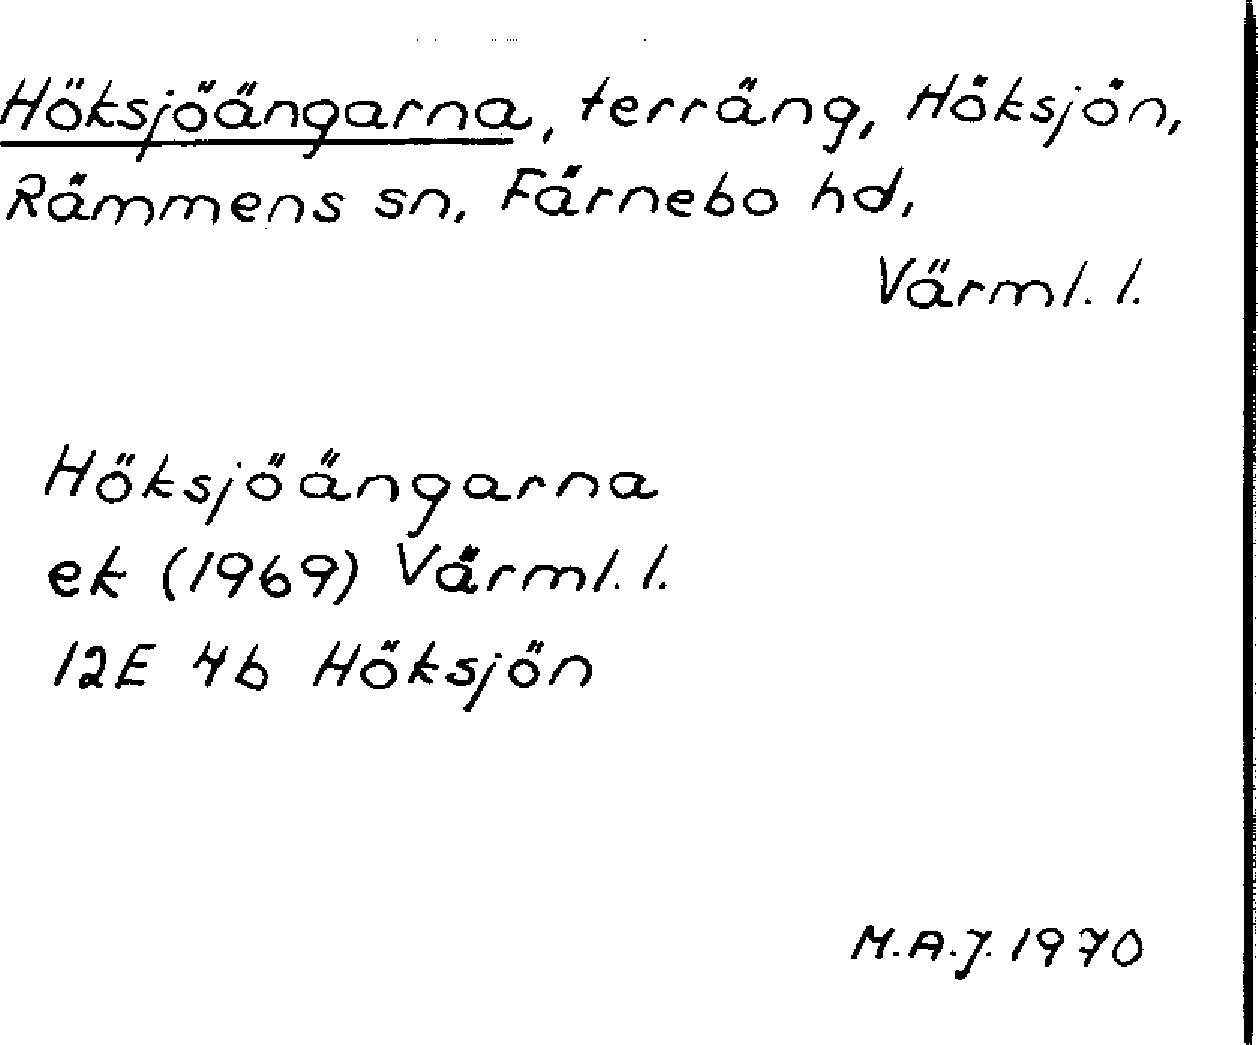 Höksjöängarna, terräng, Höksjön,
Rämmens sn, Färnebo hd,
Värml. l.
Höksjöängarna
ek (1969) Värml. l.
12E 4b Höksjön
M.A.J. 1970